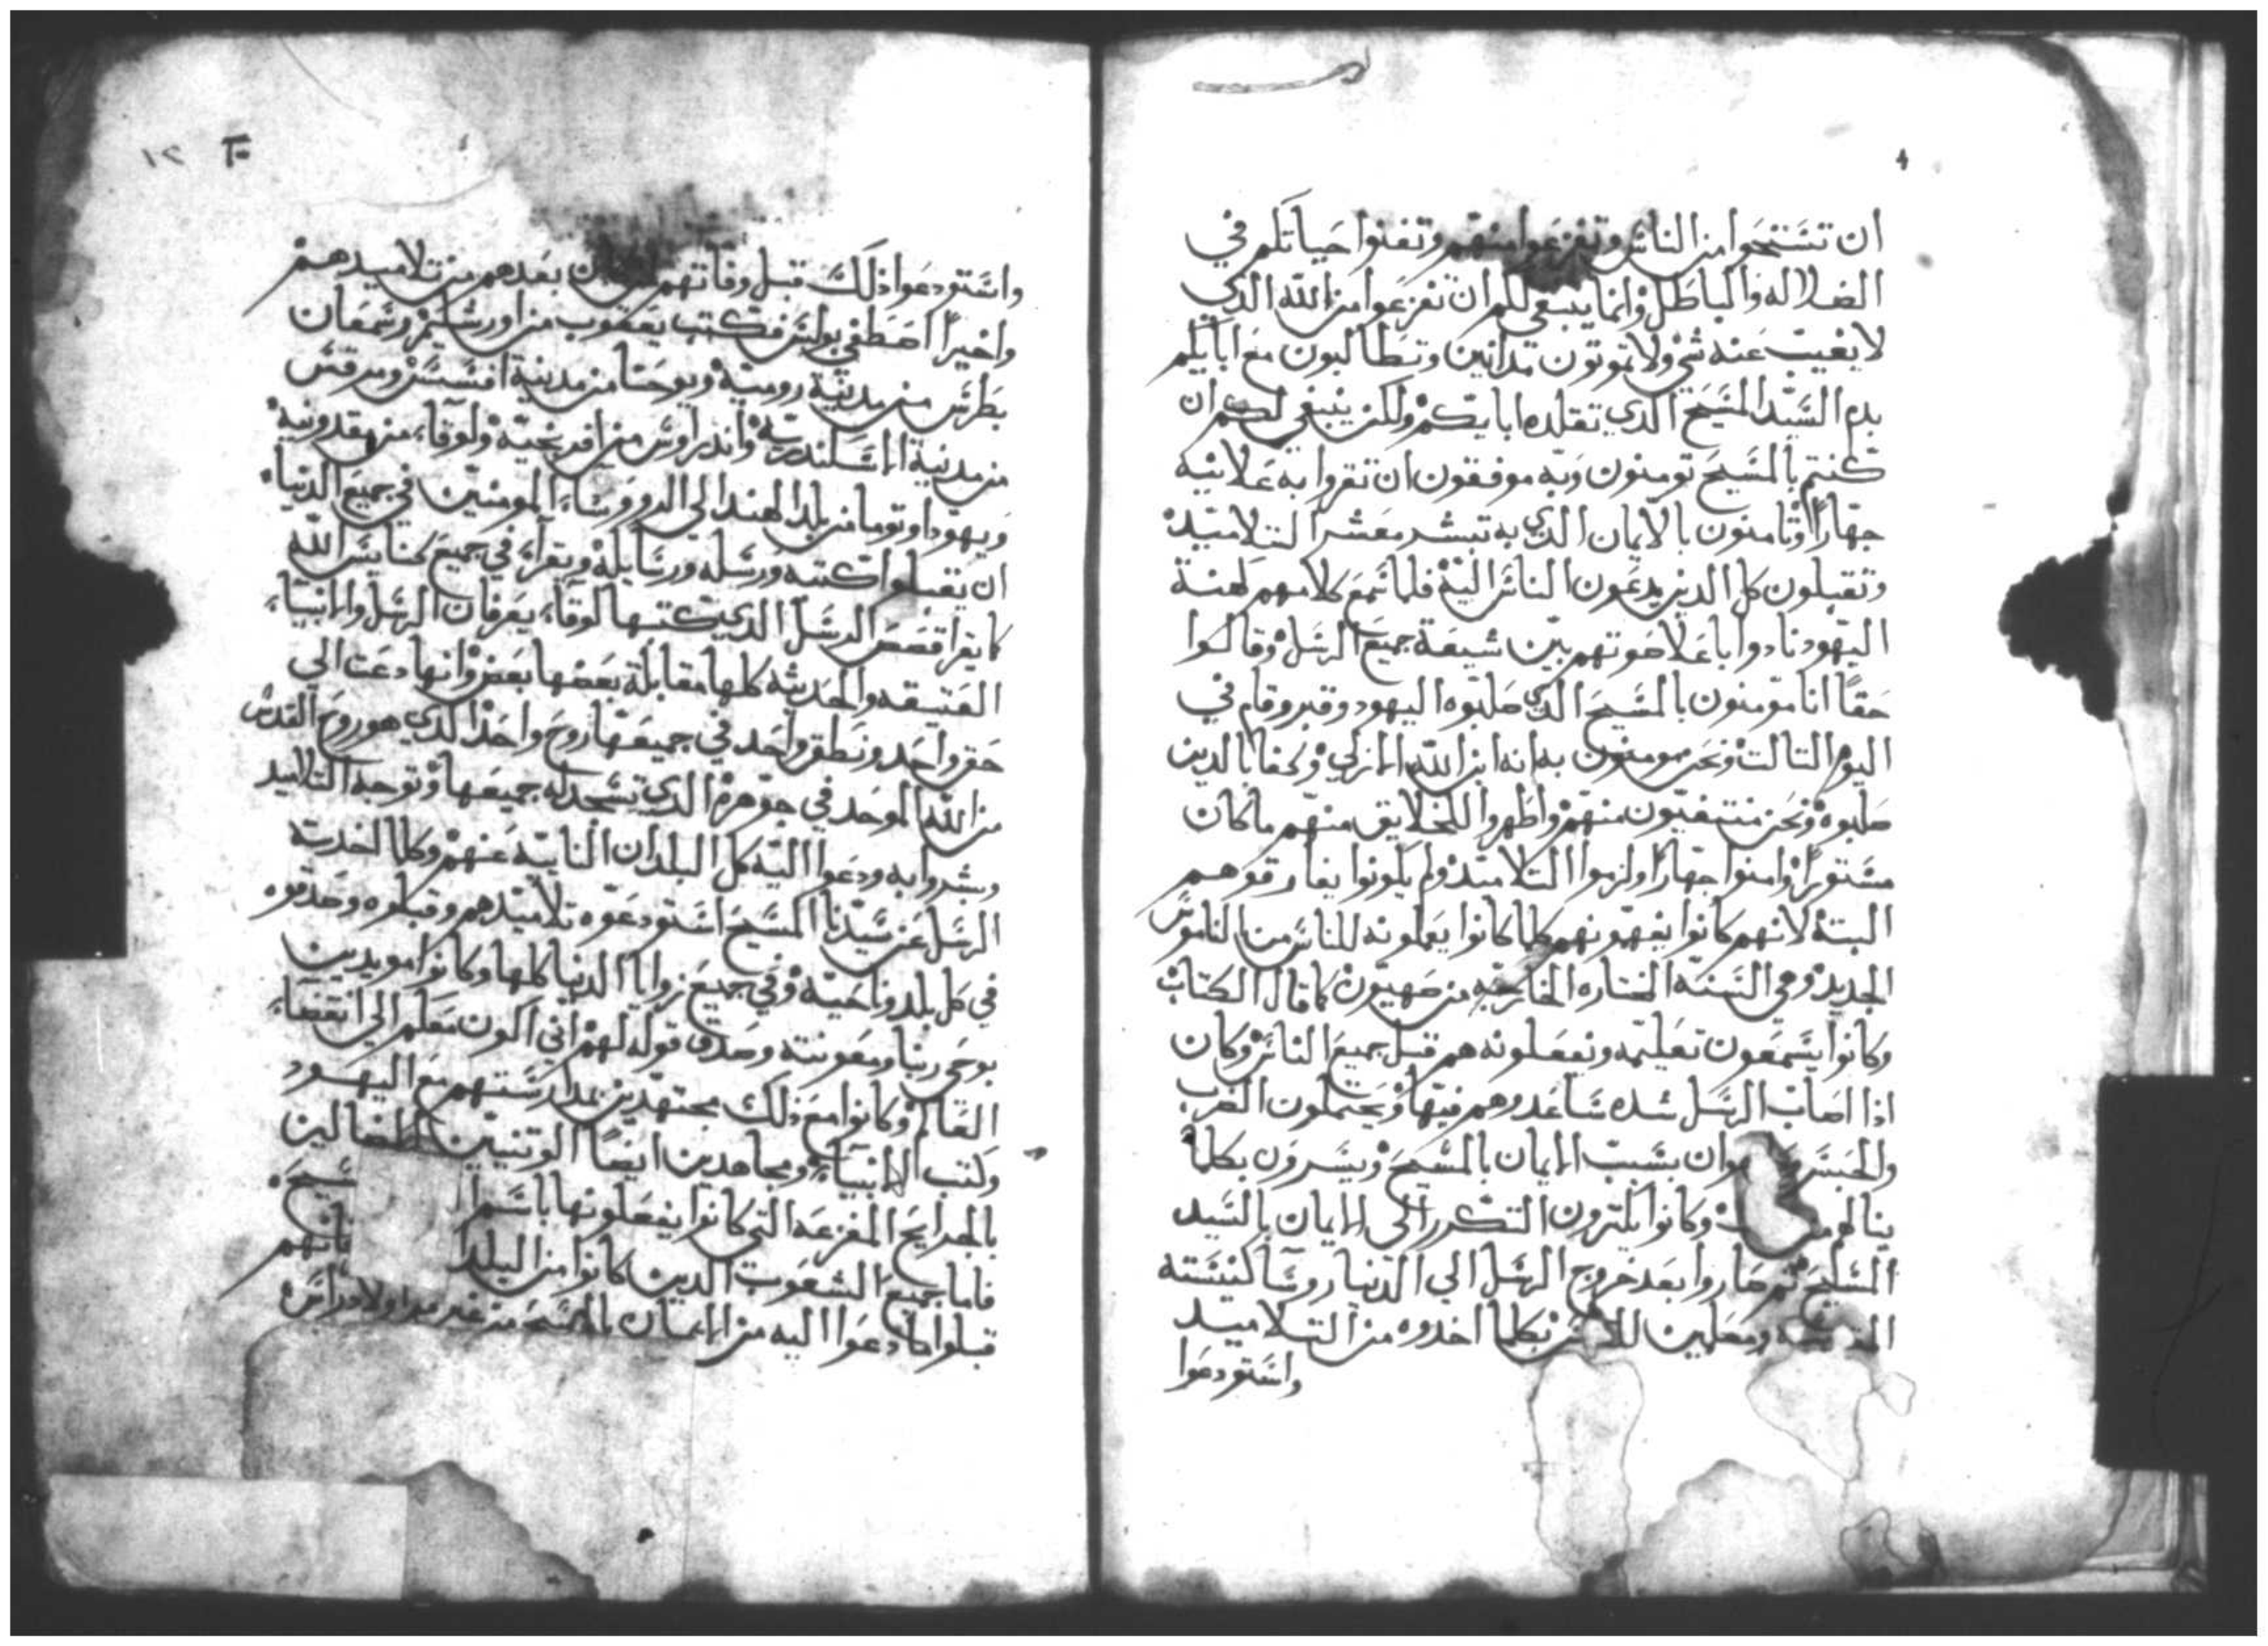 ان تستحوا من الناس وتفزعوا منهم وتفنوا حياتكم في
الضلاله والباطل وانما ينبغي لكم ان تفزعوا من الله الدي
لا يغيب عنه شي ولا تموتون مدانين وتطالبون مع ابايكم
بدم السيد المسيح الدي تقلده ابايكم ولكن ينبغي لكم ان
كنتم بالمسيح تومنون وبه موفقون ان تقروا به علانيه
جهارا وتامنون بالايمان الدي به تبشر معشر التلاميد
وتقبلون كل الدين يدعون الناس اليه فلما سمع كلامهم كهنة
اليهود نادوا باعلا صوتهم بين شيعة جميع الرسل وقالوا
حقا انا مومنون بالمسيح الدي صلبوه اليهود وقبر وقام في
اليوم التالت ونحن مومنون به انه ابن الله الازلي وكفنا بالدين
صلبوه ونحن منتفيون منهم واظهروا للخلايق منهم ما كان
مستورا وامنوا جهارا ولزموا التلاميد ولم يكونوا يفارقوهم
البتة لانهم كانوا يفهمونهم كلما كانوا يعلمونه للناس من الناموس
الجديد وهي السنه المختاره الخارجه من صهيون كما قال الكتاب
وكانوا يسمعون تعليمه ويفعلونه هم قبل جميع الناس وكان
ادا اصاب الرسل شده ساعدوهم فيها ويحتملون الضرب
والحبس وان بسبب الايمان بالمسيح ويسرون بكلما
ينالهم وكانوا يكترون التكرر الي الايمان بالسيد
المسيح ثم صاروا بعد خروج الرسل الي الدنيا روسا لكنيسته
ومعلمين للاخر بكلما اخدوه من التلاميد
واستودعوا
١٢
واستودعوا دلك قبل وفاتهم بعدهم من تلاميدهم
واخيرا اصطفي بولس فكتب يعقوب من اورشليم وشمعان
بطرس من مدينة روميه ويوحنا من مدينة افسس ومرقس
من مدينة الاسكندريه واندراوس من افريجيه ولوقا من مقدونية
ويهودا وتوما من بلد الهند الي الدوروسا المومنين في جميع الدنيا
ان يقبلوا كتبه ورسله ورسايله وتقرا في جميع كنايس الله
كما يقرا قصص الرسل الدي كتبها لوقا يعرفان الرسل والانبيا
العتيقه والحديثه كلها مقابلة بعضها بعض وانها دعت الي
حق واحد ونطق واحد في جميعها روح واحد الدي هو روح القدس
من الله الموحد في جوهره الدي تسجد له جميعها وتوجه التلاميد
وبشروا به ودعوا اليه كل البلدان النايية عنهم وكلما اخدته
الرسل عن سيدنا المسيح استودعوه تلاميدهم وقبلوه وصدقوه
في كل بلد وناحية وفي جميع زوايا الدنيا كلها وكانوا مويدين
بوحي ربنا ومعونته وصدق قوله لهم اني اكون معكم الي انقضا
العالم وكانوا مع دلك مجتهدين بمدارستهم مع اليهود
وكتب الانبيا ومجاهدين ايضا الوتنيين الضالين
بالجرايح المفزعه التي كانوا يفعلونها باسم
فاما جميع الشعوب الدين كانوا من البلد فانهم
قبلوا ما دعوا اليه من الايمان بالمسيح من غير